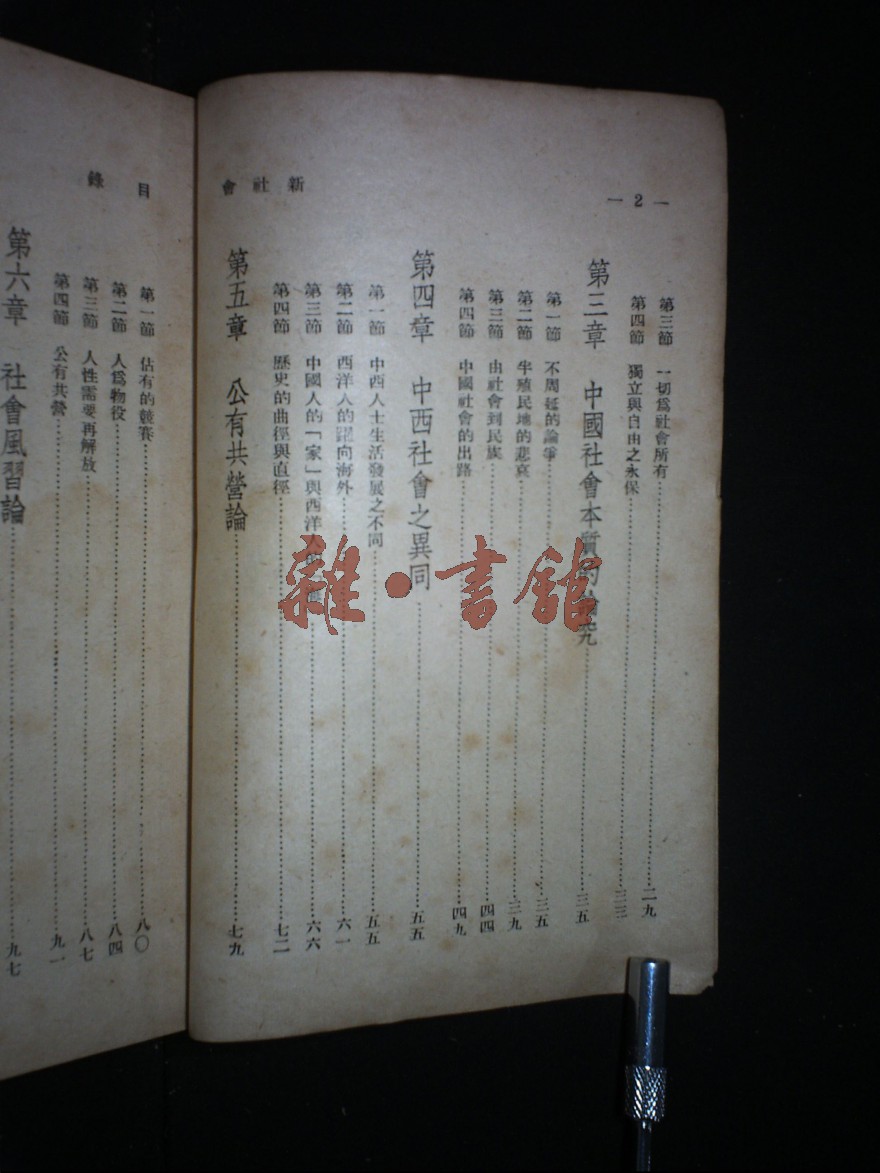 — 2 —
新社會
第三節　一切爲社會所有……二九
第四節　獨立與自由之永保……三三
第三章　中國社會本質的論究……三五
第一節　不周延的論爭……三五
第二節　半殖民地的悲哀……三九
第三節　由社會到民族……四四
第四節　中國社會的出路……四九
第四章　中西社會之異同……五五
第一節　中西人士生活發展之不同……五五
第二節　西洋人的躍向海外……六一
第三節　中國人的「家」與西洋人的……六六
第四節　歷史的曲徑與直徑……七二
第五章　公有共營論……七九
目錄
第一節　佔有的競賽……八〇
第二節　人爲物役……八四
第三節　人性需要再解放……八七
第四節　公有共營……九一
第六章　社會風習論……九七
雜·書館